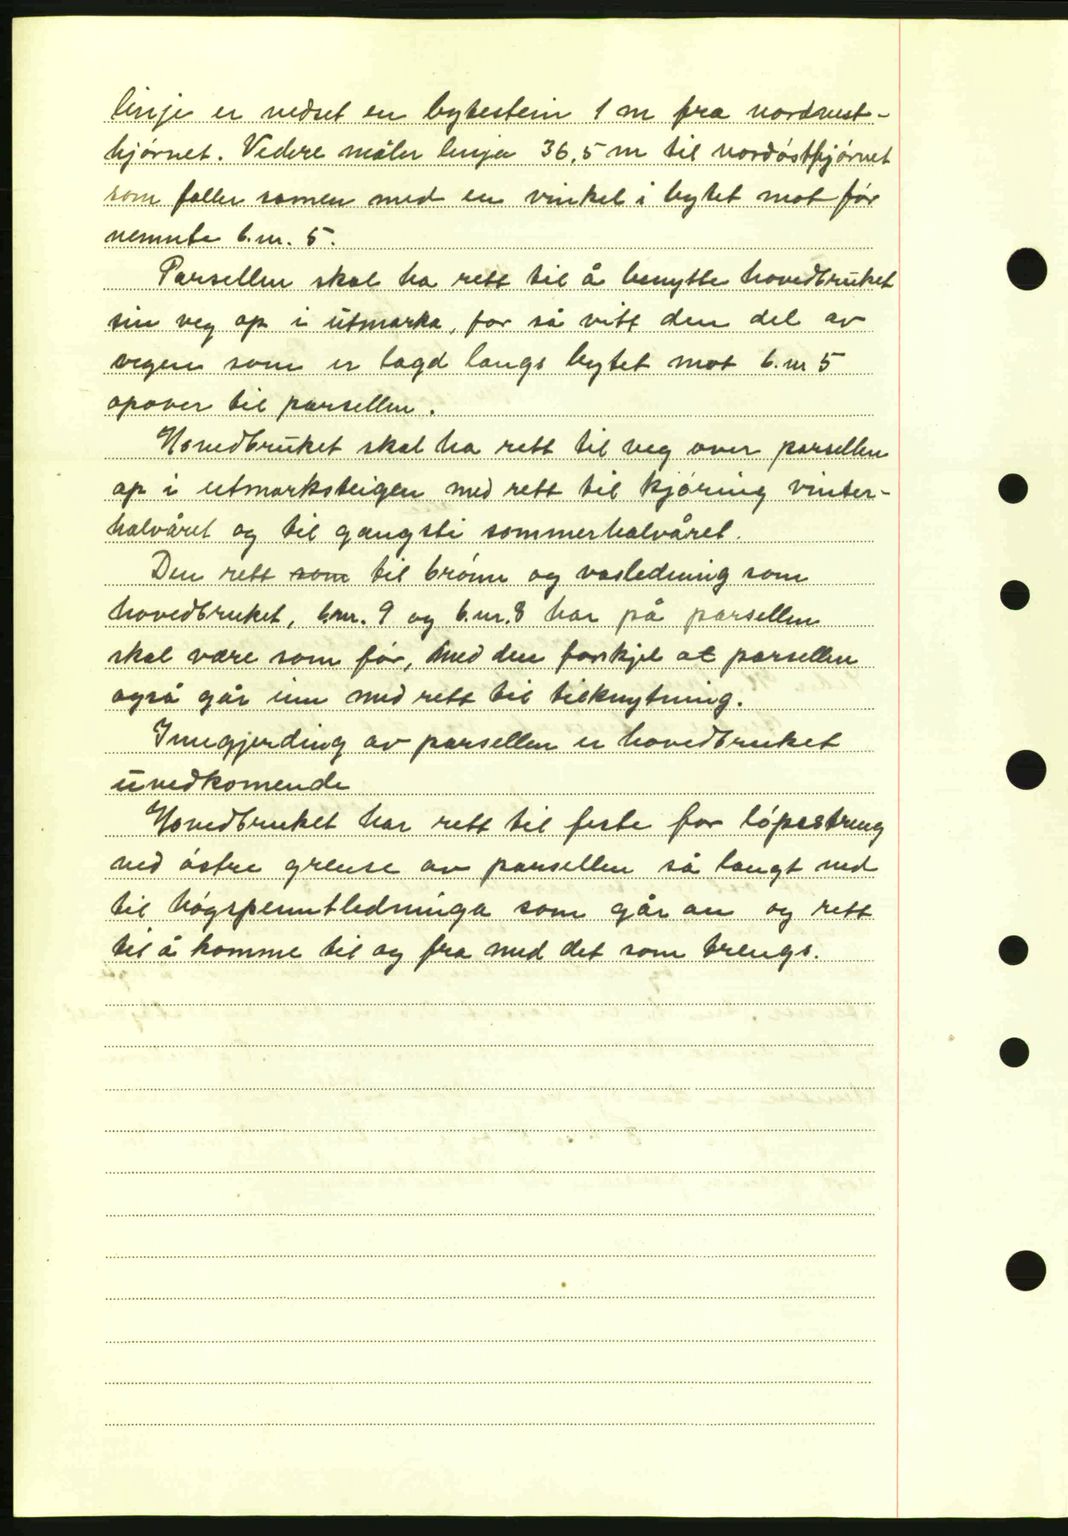 linje er nedset en bytestein 1 m fra nordvest-
hjørnet. Videre måler linja 36,5 m til nordøsthjørnet
som faller samen med en vinkel i bytet mot før
nemnte b.nr. 5.
Parsellen skal ha rett til å benytte hovedbruket
sin veg op i utmarka, for så vitt den del av
vegen som er lagd langs bytet mot b.nr 5
opover til parsellen.
Hovedbruket skal ha rett til veg over parsellen
op i utmarksteigen med rett til kjøring vinter-
halvåret og til gangsti sommerhalvåret.
Den rett som til brønn og vasledning som
hovedbruket, b.nr. 9 og b.nr. 8 har på parsellen
skal være som før, med den forskjel at parsellen
også går inn med rett til tilknytning.
Innegjerding av parsellen er hovedbruket
uvedkomende
Hovedbruket har rett til feste for løpestreng
ved østre grense av parsellen så langt ned
til høgspenntledninga som går an og rett
til å komme til og fra med det som trengs.